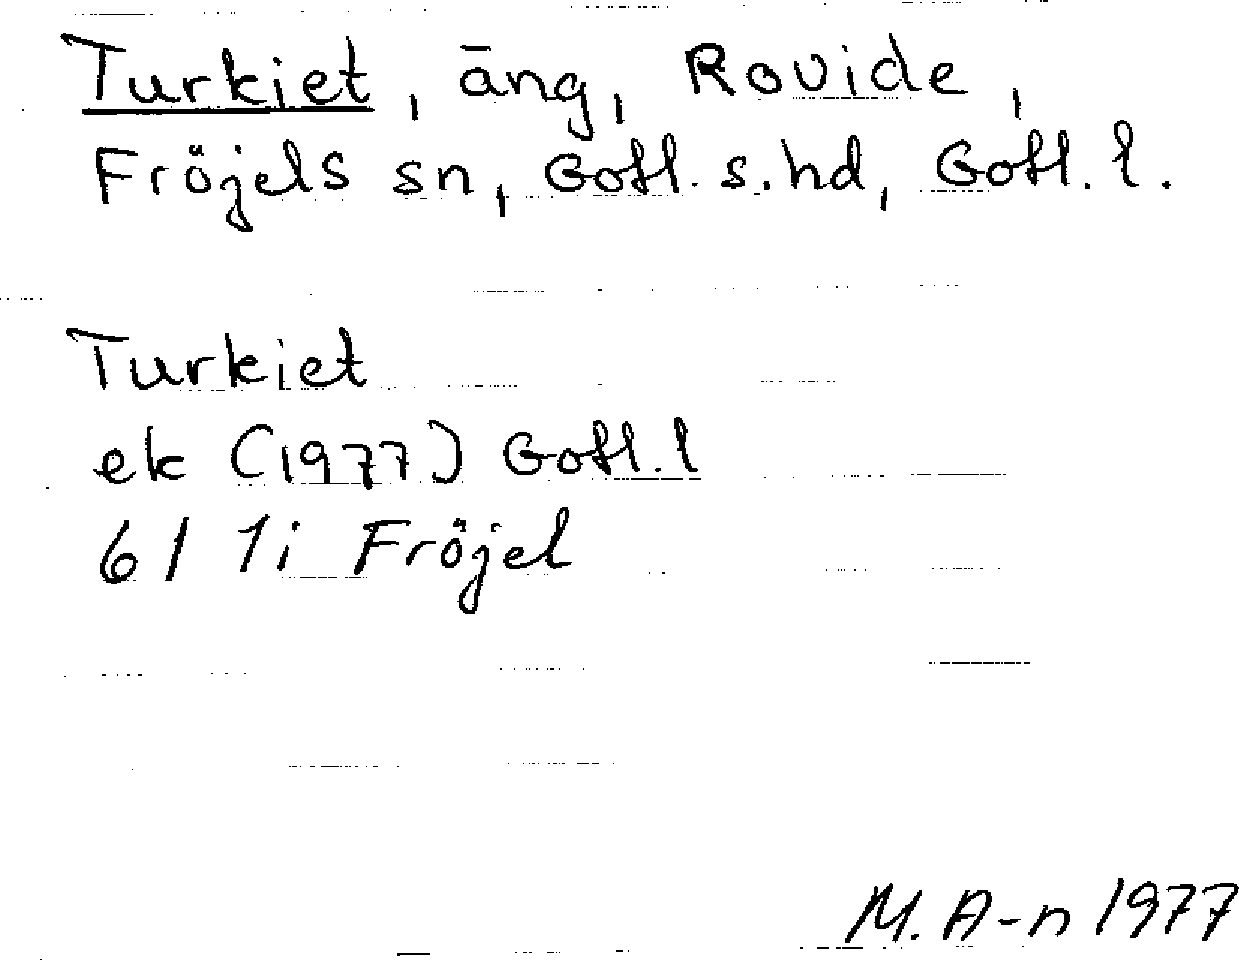 Turkiet, äng, Rovide,
Fröjels sn, Gotl. s. hd, Gotl. l.
Turkiet
ek (1977) Gotl. l
6I 1i Fröjel
M. A-n 1977